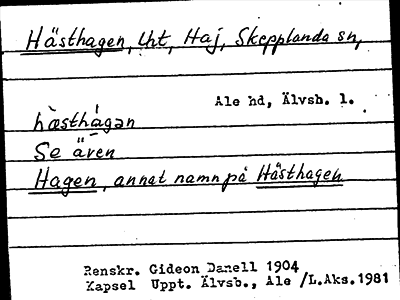 Hästhagen, lht, Haj, Skepplanda sn,
Ale hd, Älvsb. l.
hästhågan
Se även
Hagen, annat namn på Hästhagen
Renskr. Gideon Danell 1904
Kapsel Uppt. Älvsb., Ale /L.Aks.1981